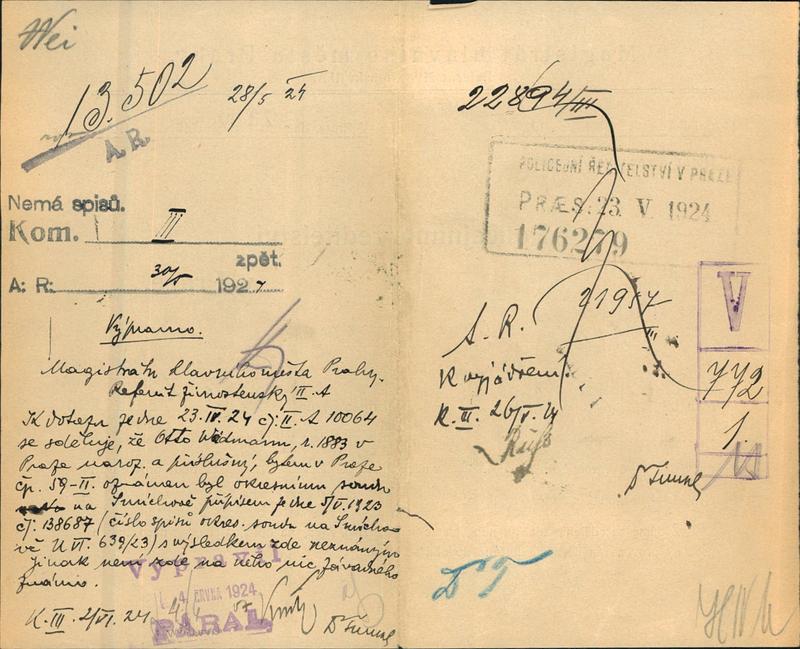 Wei
13.502
28/5 24
A. R.
Nemá spisů.
Kom. III
zpět.
A: R: 30/5 1924
Výpravno.
Magistrátu hlavního města Prahy.
Referát živnostenský II. A
K dotazu ze dne 23.IV.24 čj: II. A 10064
se sděluje, že Otto Widmann, r. 1883 v
Praze naroz. a příslušný, bytem v Praze
čp. 59-II. oznámen byl okresnímu soudu
na Smíchově přípisem ze dne 5/V.1923
čj: 138687 (číslo spisů okres. soudu na Smícho-
vě U VI. 639/23) s výsledkem zde neznámým
jinak není zde na něho nic závadného
známo.
Vypravil
4. ČERVNA 1924
PARAL
K. III. 2/VI. 24
22894/III
POLICEJNÍ ŘEDITELSTVÍ V PRAZE
PRÆS: 23. V. 1924
176279
A. R. 21957
III
K vyjádření.
K. III. 26/V. 24
V
772
1.